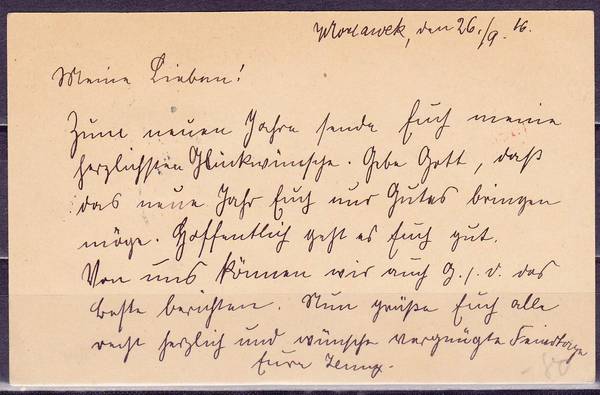 Wloclawek, den 26./9. 16.
Meine Lieben!
Zum neuen Jahre sende Euch meine
herzlichsten Glückwünsche. Gebe Gott, daß
das neue Jahr Euch nur Gutes bringen
möge. Hoffentlich geht es Euch gut.
Von uns können wir auch G. s. d. das
beste berichten. Nun grüße Euch alle
recht herzlich und wünsche vergnügte Feiertage
Eure Jenny.
-80